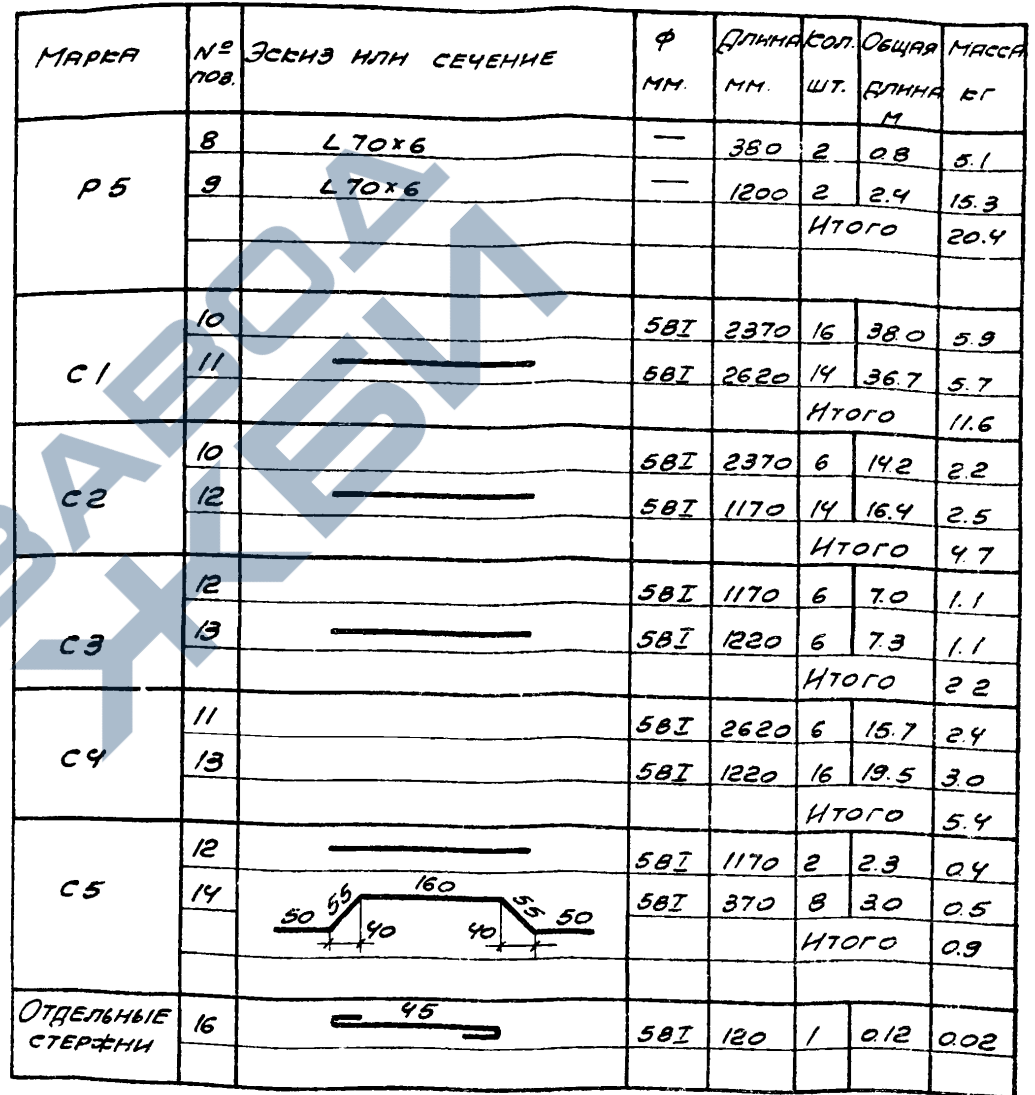 Марка № поз. Эскиз или сечение Ф мм. Длина мм. Кол. шт. Общая длина м Масса кг
Р5 8 L 70×6 — 380 2 0.8 5.1
9 L 70×6 — 1200 2 2.4 15.3
Итого 20.4
С1 10 5ВI 2370 16 38.0 5.9
11 5ВI 2620 14 36.7 5.7
Итого 11.6
С2 10 5ВI 2370 6 14.2 2.2
12 5ВI 1170 14 16.4 2.5
Итого 4.7
С3 12 5ВI 1170 6 7.0 1.1
13 5ВI 1220 6 7.3 1.1
Итого 2 2
С4 11 5ВI 2620 6 15.7 2.4
13 5ВI 1220 16 19.5 3.0
Итого 5.4
С5 12 5ВI 1170 2 2.3 0.4
14 50 55 160 55 50 40 40 5ВI 370 8 3.0 0.5
Итого 0.9
Отдельные стержни 16 45 5ВI 120 1 0.12 0.02
ЗАВОД
ЖБИ